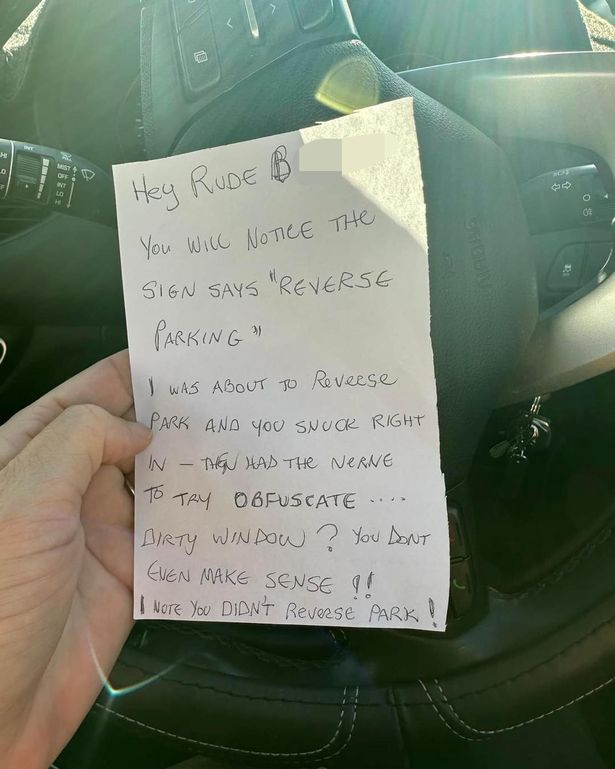 Hey RUDE B
YOU WILL NOTICE THE
SIGN SAYS "REVERSE
PARKING"
I WAS ABOUT TO ReveRse
PARK AND YOU SNUCK RIGHT
IN – THEN HAD THE NERVE
TO TRY OBFUSCATE ....
DIRTY WINDOW ? YOU DONT
EVEN MAKE SENSE !!
I NOTE YOU DIDN'T ReveRse PARK !
HI
LO
INT
MIST
OFF
INT
LO
HI